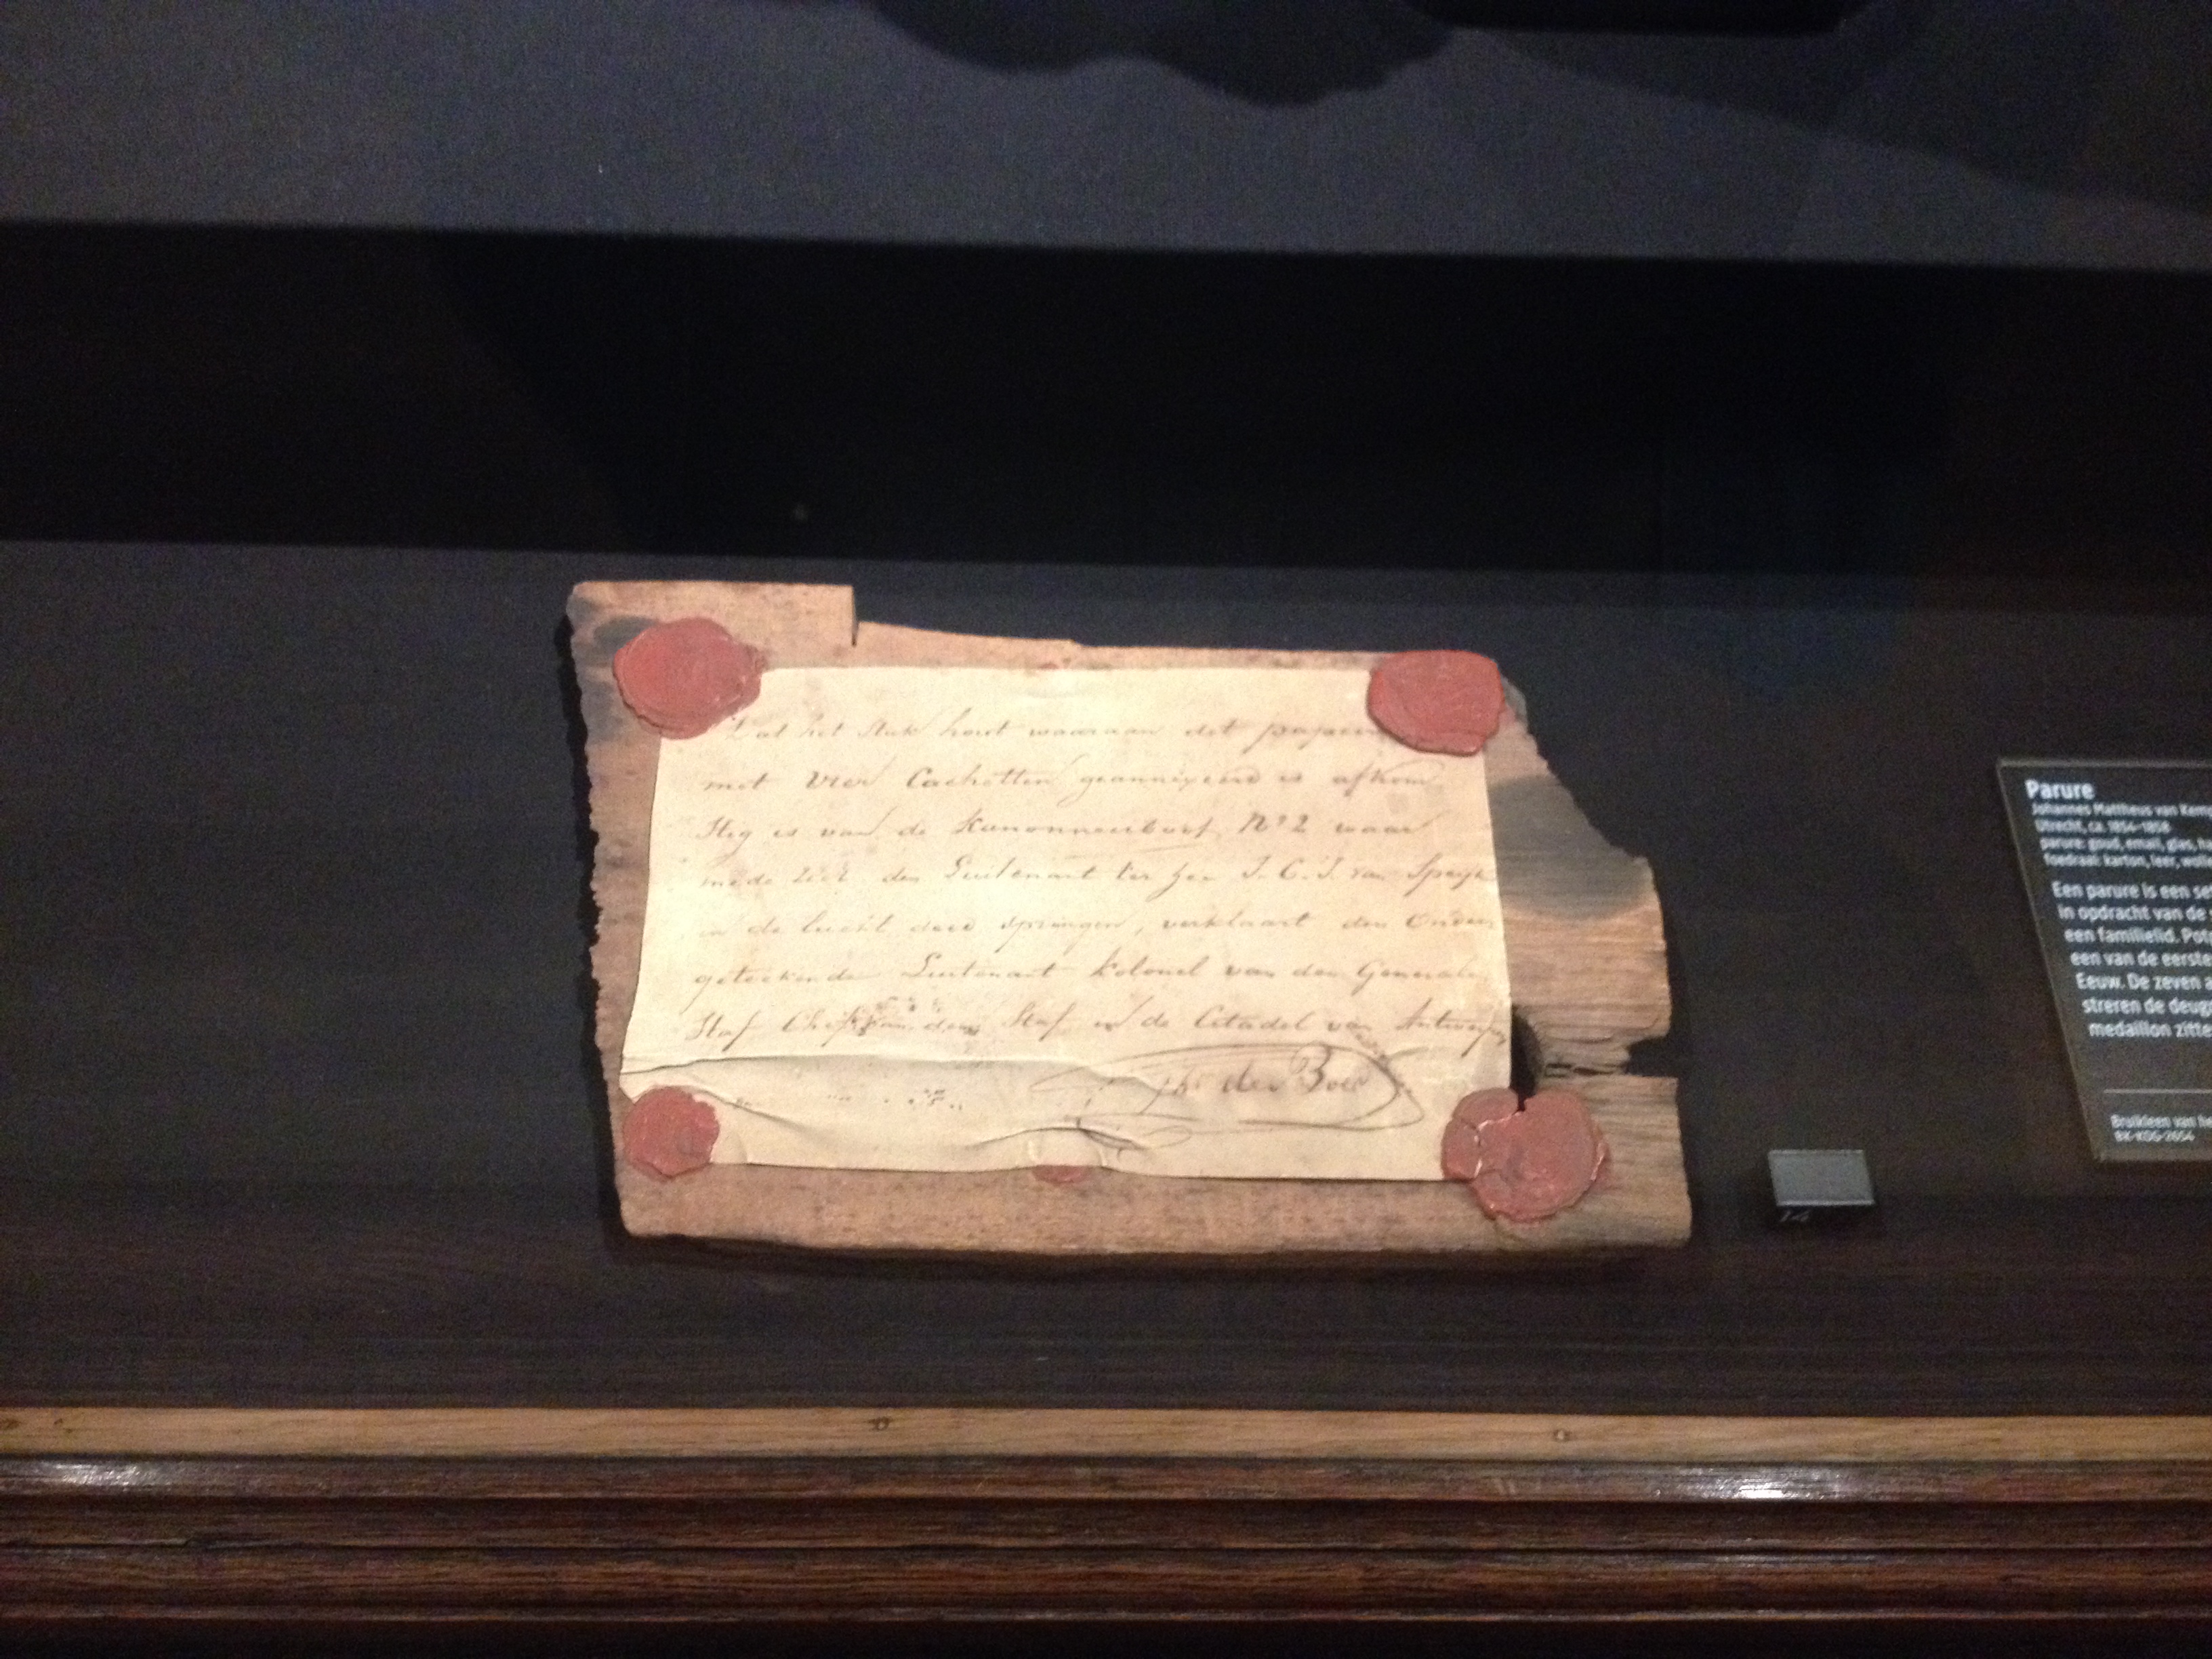 Dat het stuk hout waaraan dit papier
met Vier Cachetten geannexeerd is afkom
stig is van de Kanonneerboot N° 2 waar
mede zich den Luitenant ter Zee J. C. J. van Speijk
in de lucht deed springen, verklaart den Onder
geteekende Luitenant Kolonel van den Generalen
Staf Chef van den Staf in de Citadel van Antwerpen
Parure
Johannes Mattheus van Kem
Utrecht, ca. 1854-1858
parure: goud, email, glas, h
foedraal: karton, leer,
Een parure is een se
in opdracht van de
een familielid.
een van de eerste
Eeuw. De zeven a
streren de deug
medaillon zitte
Bruikleen van he
BK-KOG-2654
14